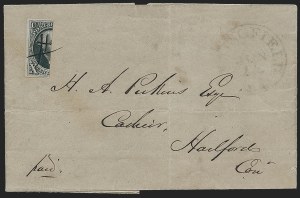 H. A. Perkins Esqr
Cashier,
Hartford
Con
paid.